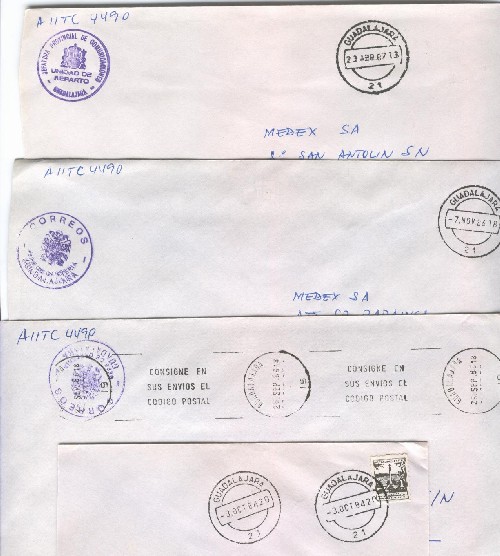 AIITC 4490
JEFATURA PROVINCIAL DE COMUNICACIONES
UNIDAD DE
REPARTO
GUADALAJARA
GUADALAJARA
23 ABR.87 13
21
MEDEX SA
Bº SAN ANTOLIN SN
AIITC 4490
CORREOS
GUADALAJARA
GUADALAJARA
-7.NOV.86 18
21
MEDEX SA
AIITC 4490
CORREOS
CONSIGNE EN
SUS ENVIOS EL
CODIGO POSTAL
GUADALAJARA
SEP
CONSIGNE EN
SUS ENVIOS EL
CODIGO POSTAL
SEP
S/N
GUADALAJARA
-3.OCT 84 20
21
GUADALAJARA
-3.OCT 84 20
21